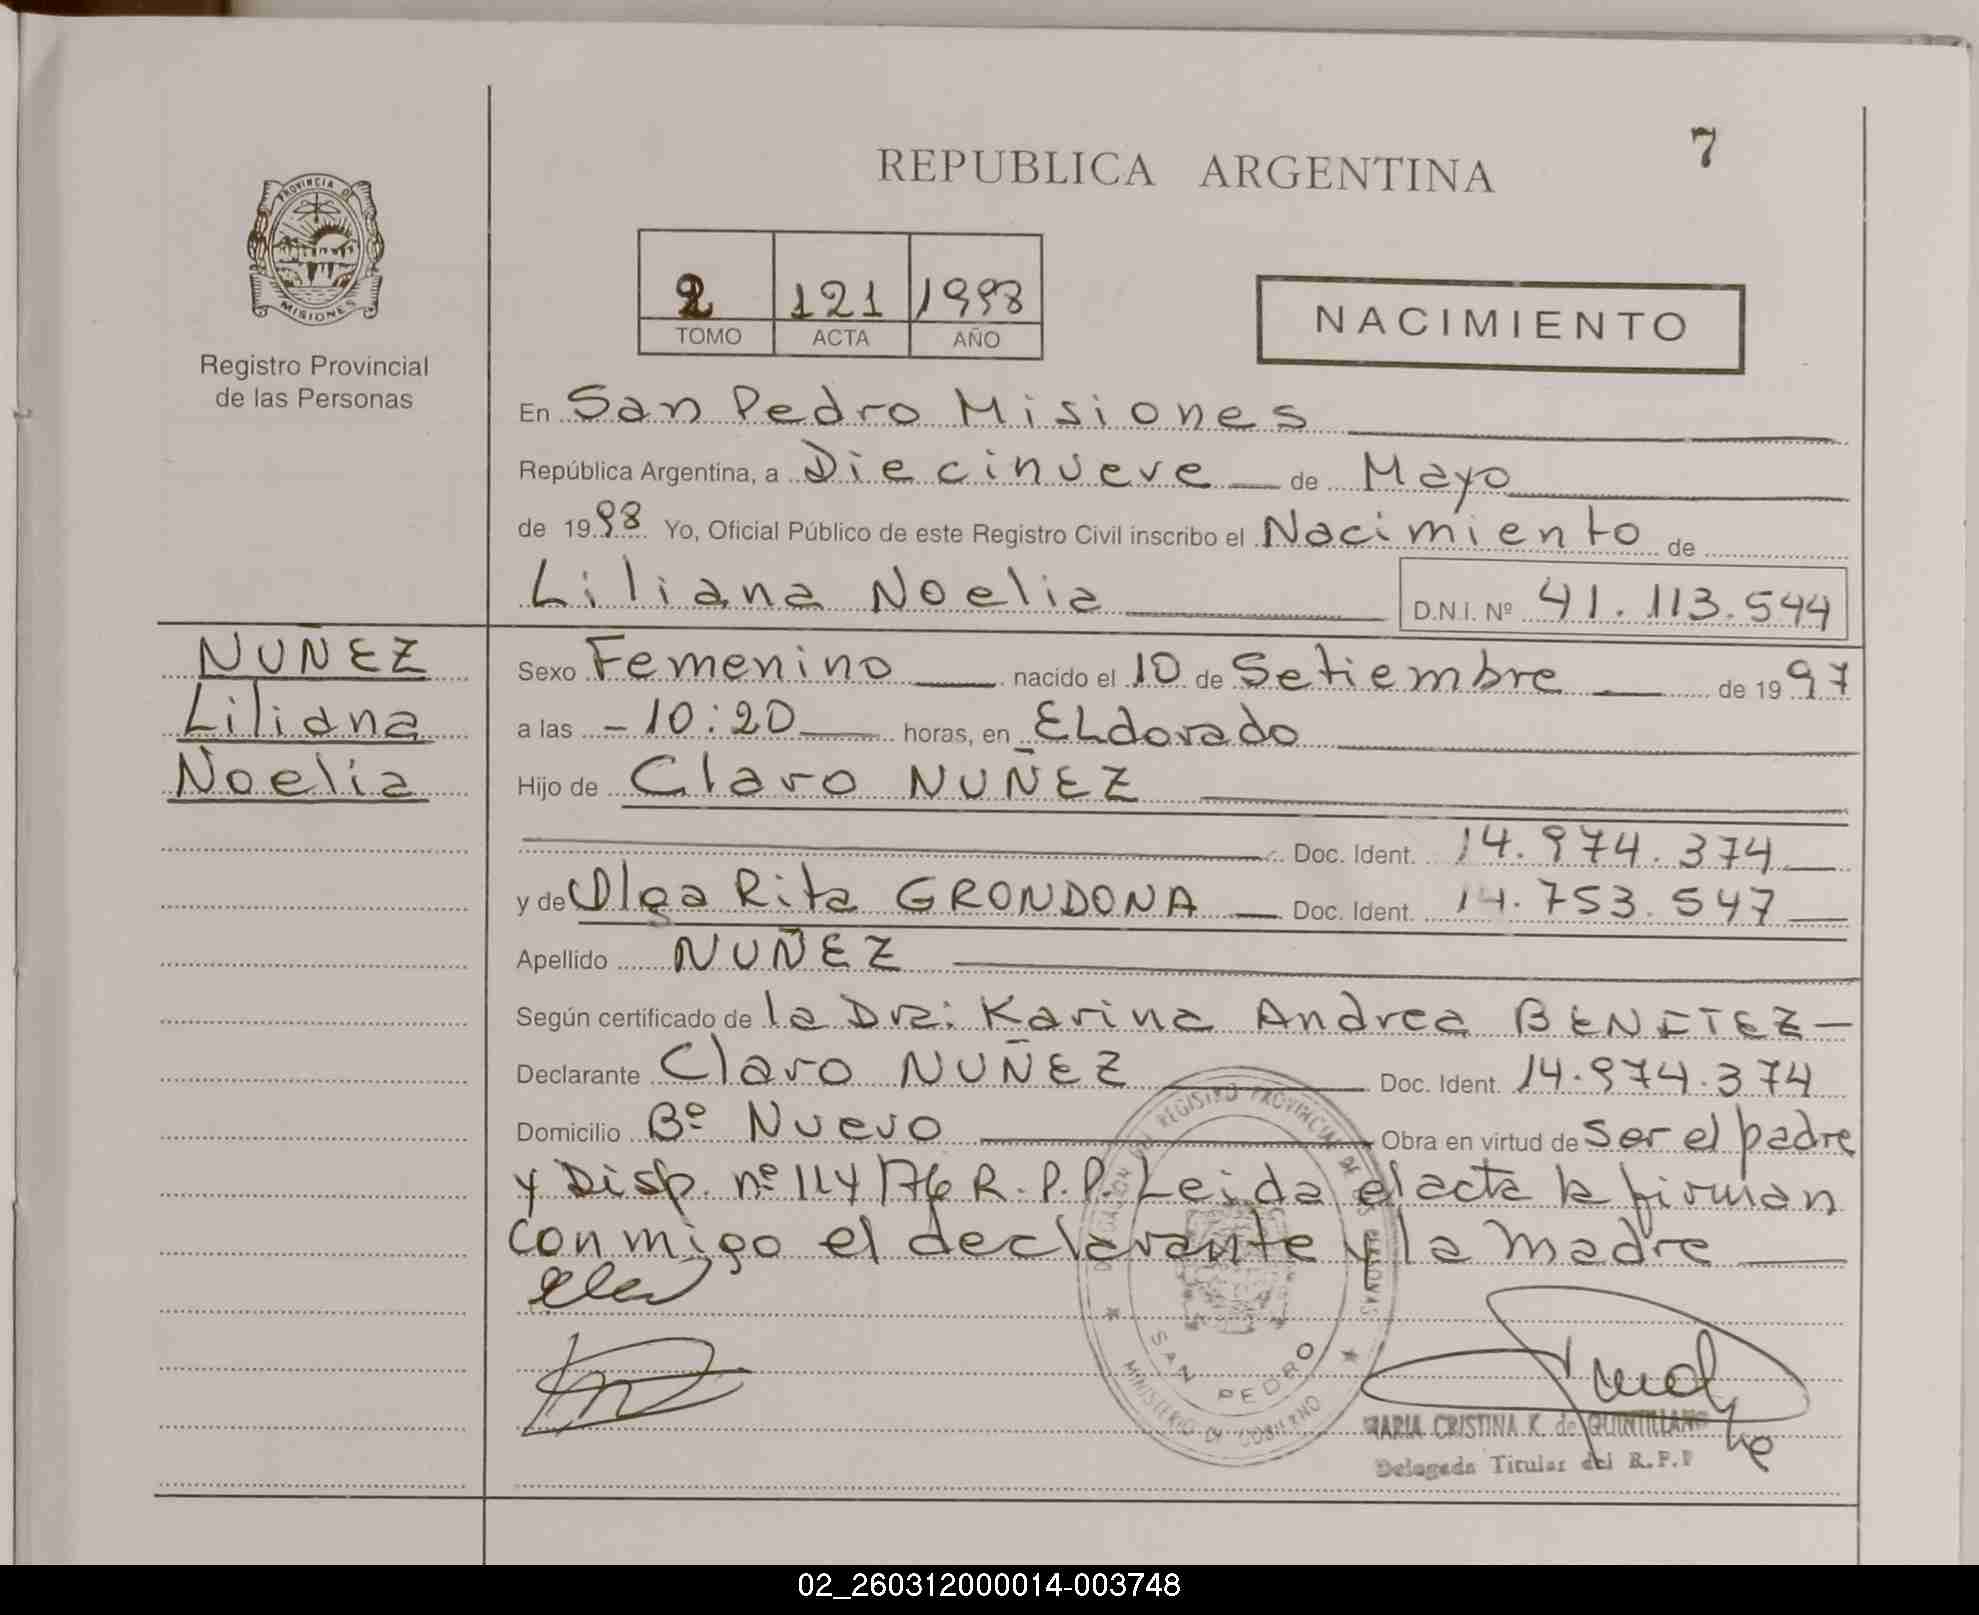 7
REPUBLICA ARGENTINA
PROVINCIA DE
MISIONES
Registro Provincial
de las Personas
2 121 1998
TOMO ACTA AÑO
NACIMIENTO
En San Pedro Misiones
República Argentina, a Diecinueve de Mayo
de 1998 Yo, Oficial Público de este Registro Civil inscribo el Nacimiento de
Liliana Noelia D.N.I. Nº 41.113.544
NUÑEZ
Liliana
Noelia
Sexo Femenino nacido el 10 de Setiembre de 1997
a las - 10:20 horas, en ELdorado
Hijo de Claro NUÑEZ
Doc. Ident. 14.974.374
y de Olga Rita GRONDONA Doc. Ident. 14.753.547
Apellido NUÑEZ
Según certificado de la Dra: Karina Andrea BENITEZ
Declarante Claro NUÑEZ Doc. Ident. 14.974.374
Domicilio Bº Nuevo Obra en virtud de ser el padre
y Disp. nº 114/76 R.P.P. Leida el acta la firman
conmigo el declarante y la madre
DELEGACION DEL REGISTRO PROVINCIAL DE LAS PERSONAS
SAN PEDRO
MINISTERIO DE GOBIERNO
MARIA CRISTINA K. de QUINTILLAN
Delegada Titular del R.P.P
02_260312000014-003748